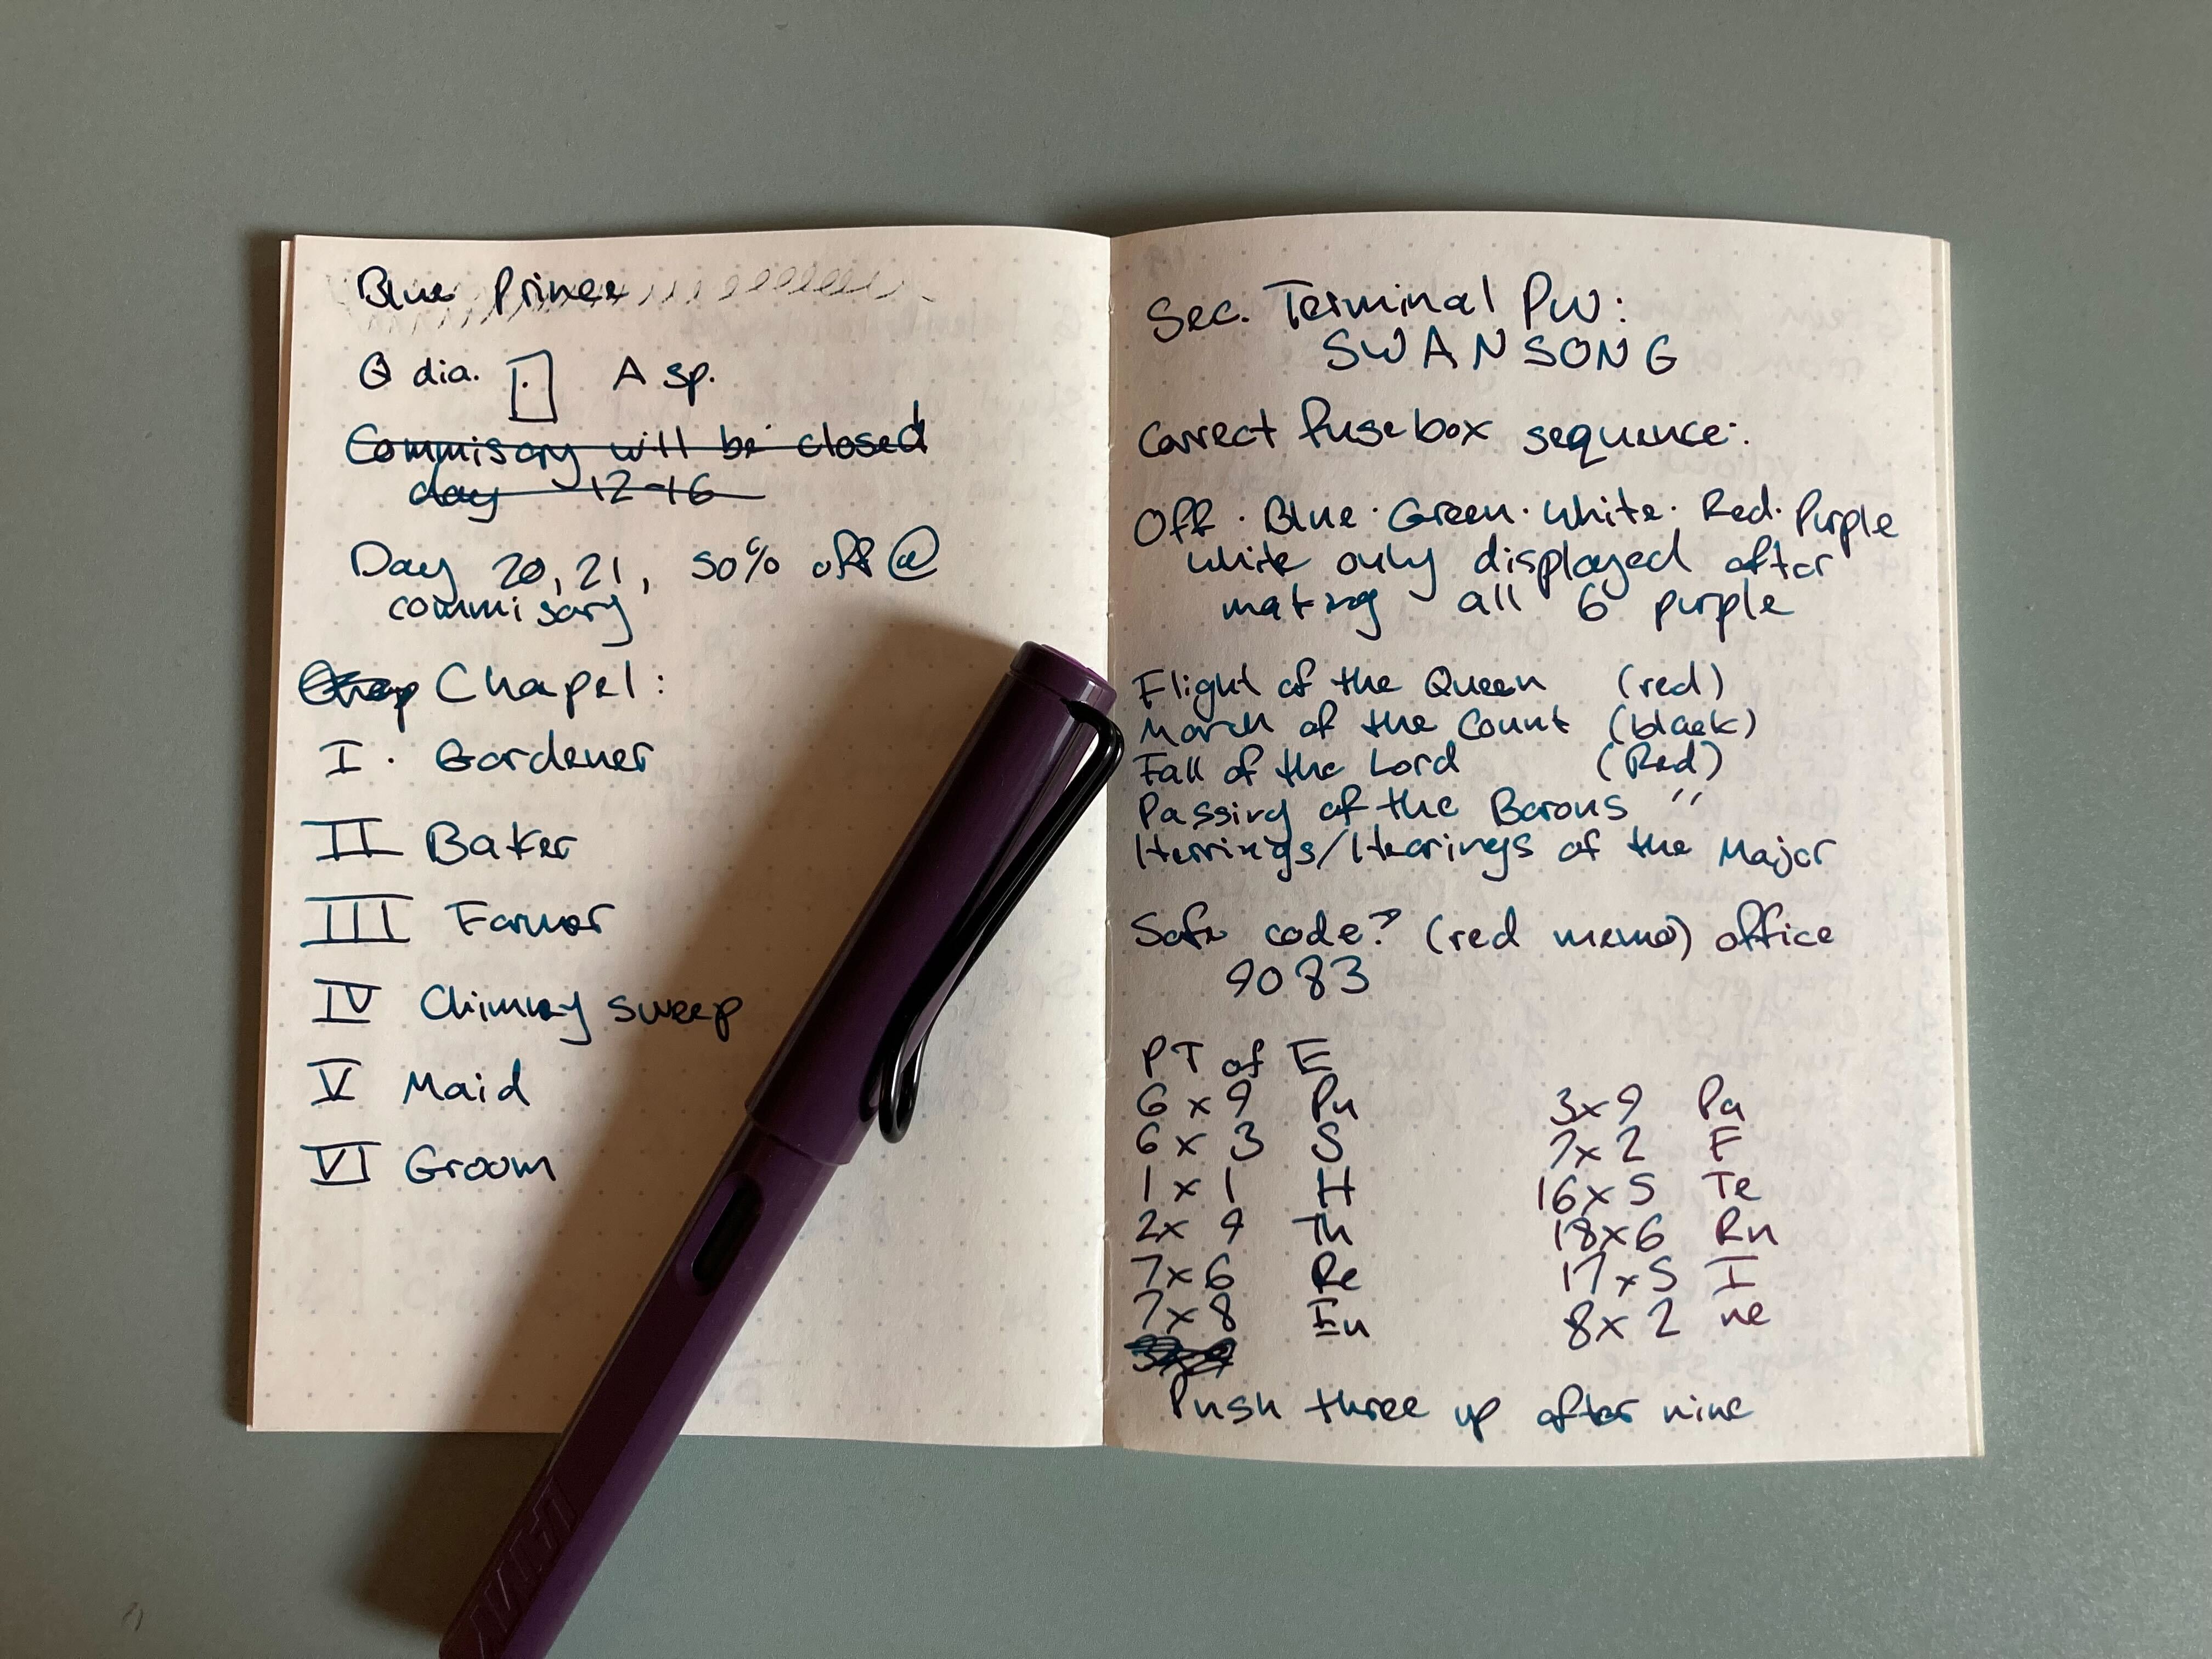 Blue Prince
Q dia. A sp.
Commisary will be closed
day 12-16
Day 20, 21, 50% off @
commisary
Chap Chapel:
I. Gardener
II Baker
III Farmer
IV Chimney sweep
V Maid
VI Groom
LAMY
Sec. Terminal PW:
SWANSONG
Correct fusebox sequence:
Off · Blue · Green · White · Red · Purple
white only displayed after
making all 6 purple
Flight of the Queen (red)
March of the Count (black)
Fall of the Lord (Red)
Passing of the Barons "
Herrings/Hearings of the Major
Safe code? (red memo) office
9083
PT of E
6 x 9 Pu 3x9 Pa
6 x 3 S 7x2 F
1 x 1 H 16x5 Te
2x 9 Th 18x6 Rn
7x6 Re 17x5 I
7x8 Eu 8x2 ne
Push three up after nine